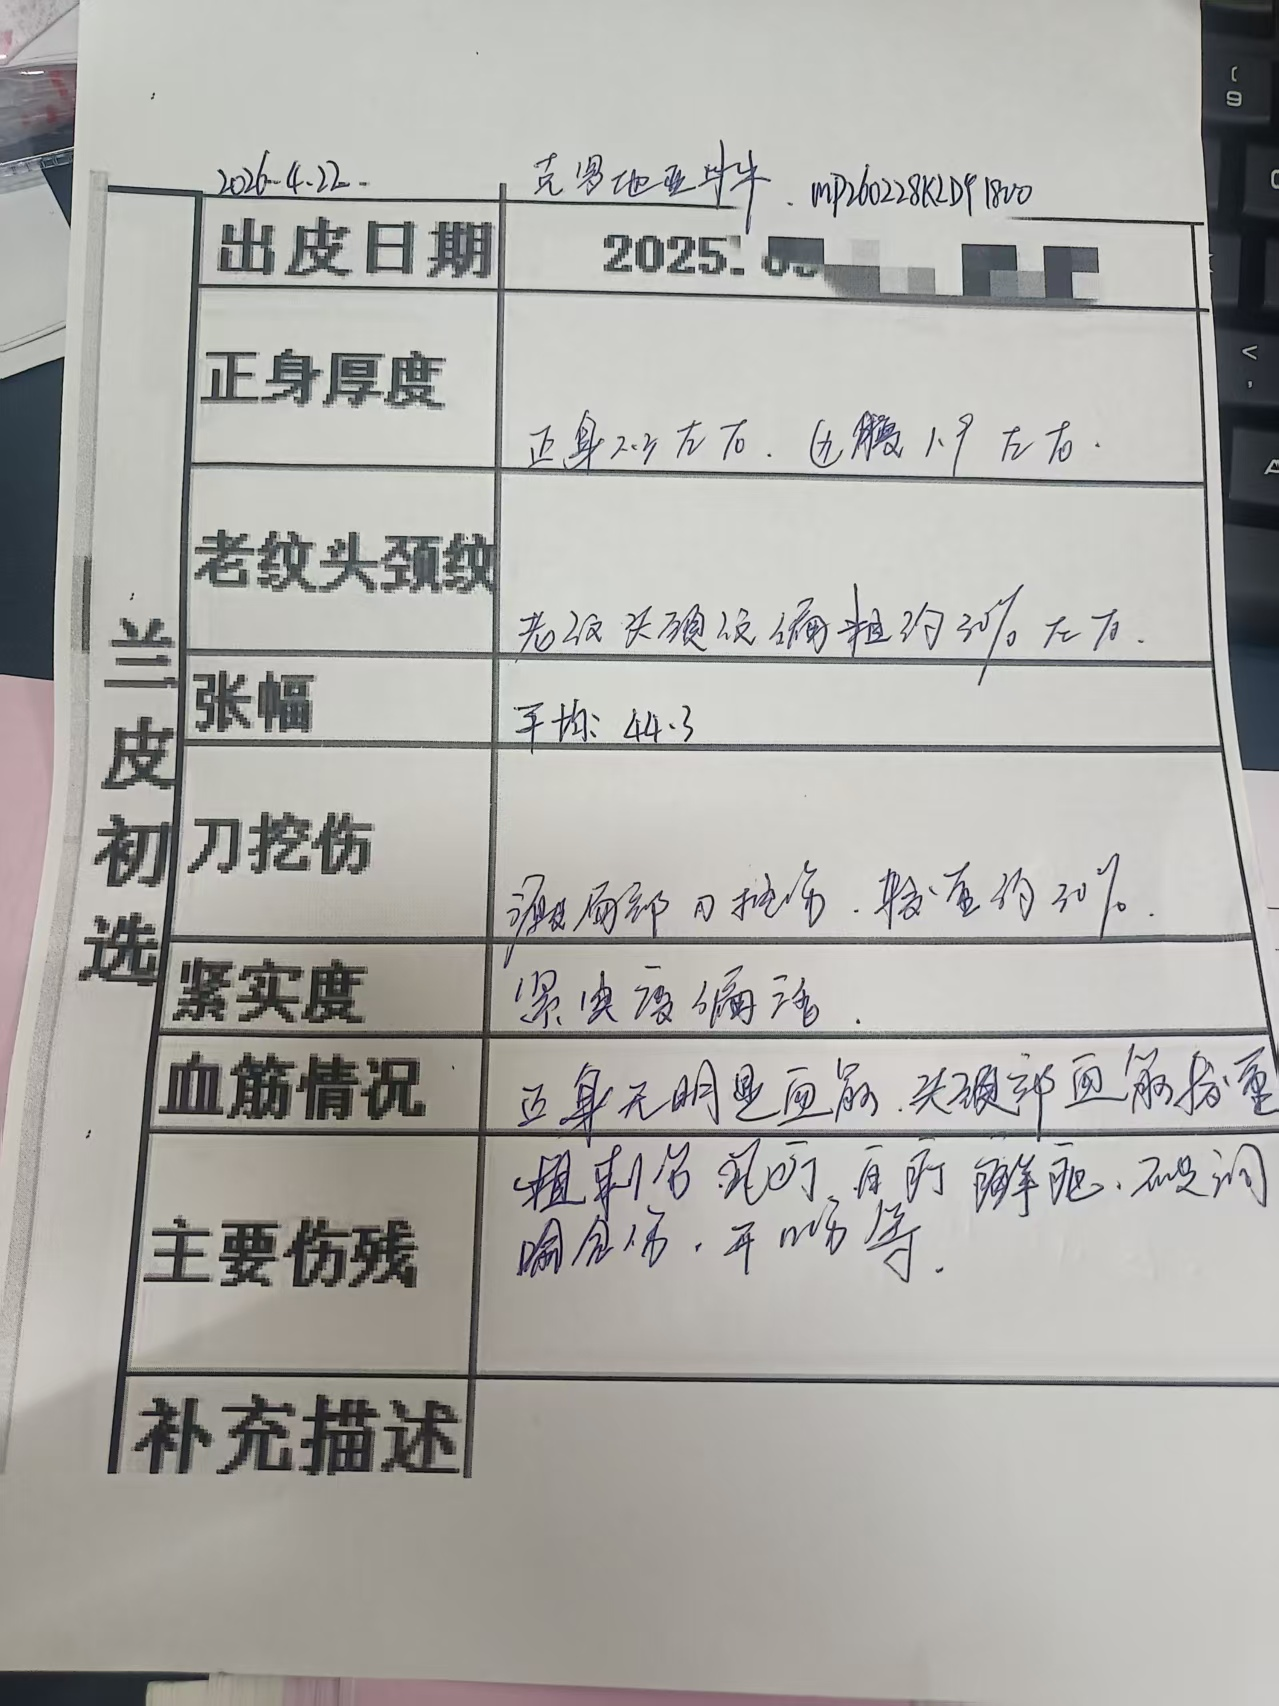 2026-4.22.
克罗地亚牛 . MP260228KLDY1800
出皮日期
2025.
正身厚度
正身2.3左右. 边腹1.9左右.
老纹头颈纹
老纹头颈纹偏粗约30%左右.
张幅
平均: 44.3
刀挖伤
局部刀挖伤. 较重约30%.
紧实度
紧实度偏活.
血筋情况
正身无明显血筋. 头颈部血筋较重
主要伤残
粗刺伤 癣疤. 破洞
伤. 开 等.
补充描述
兰皮初选